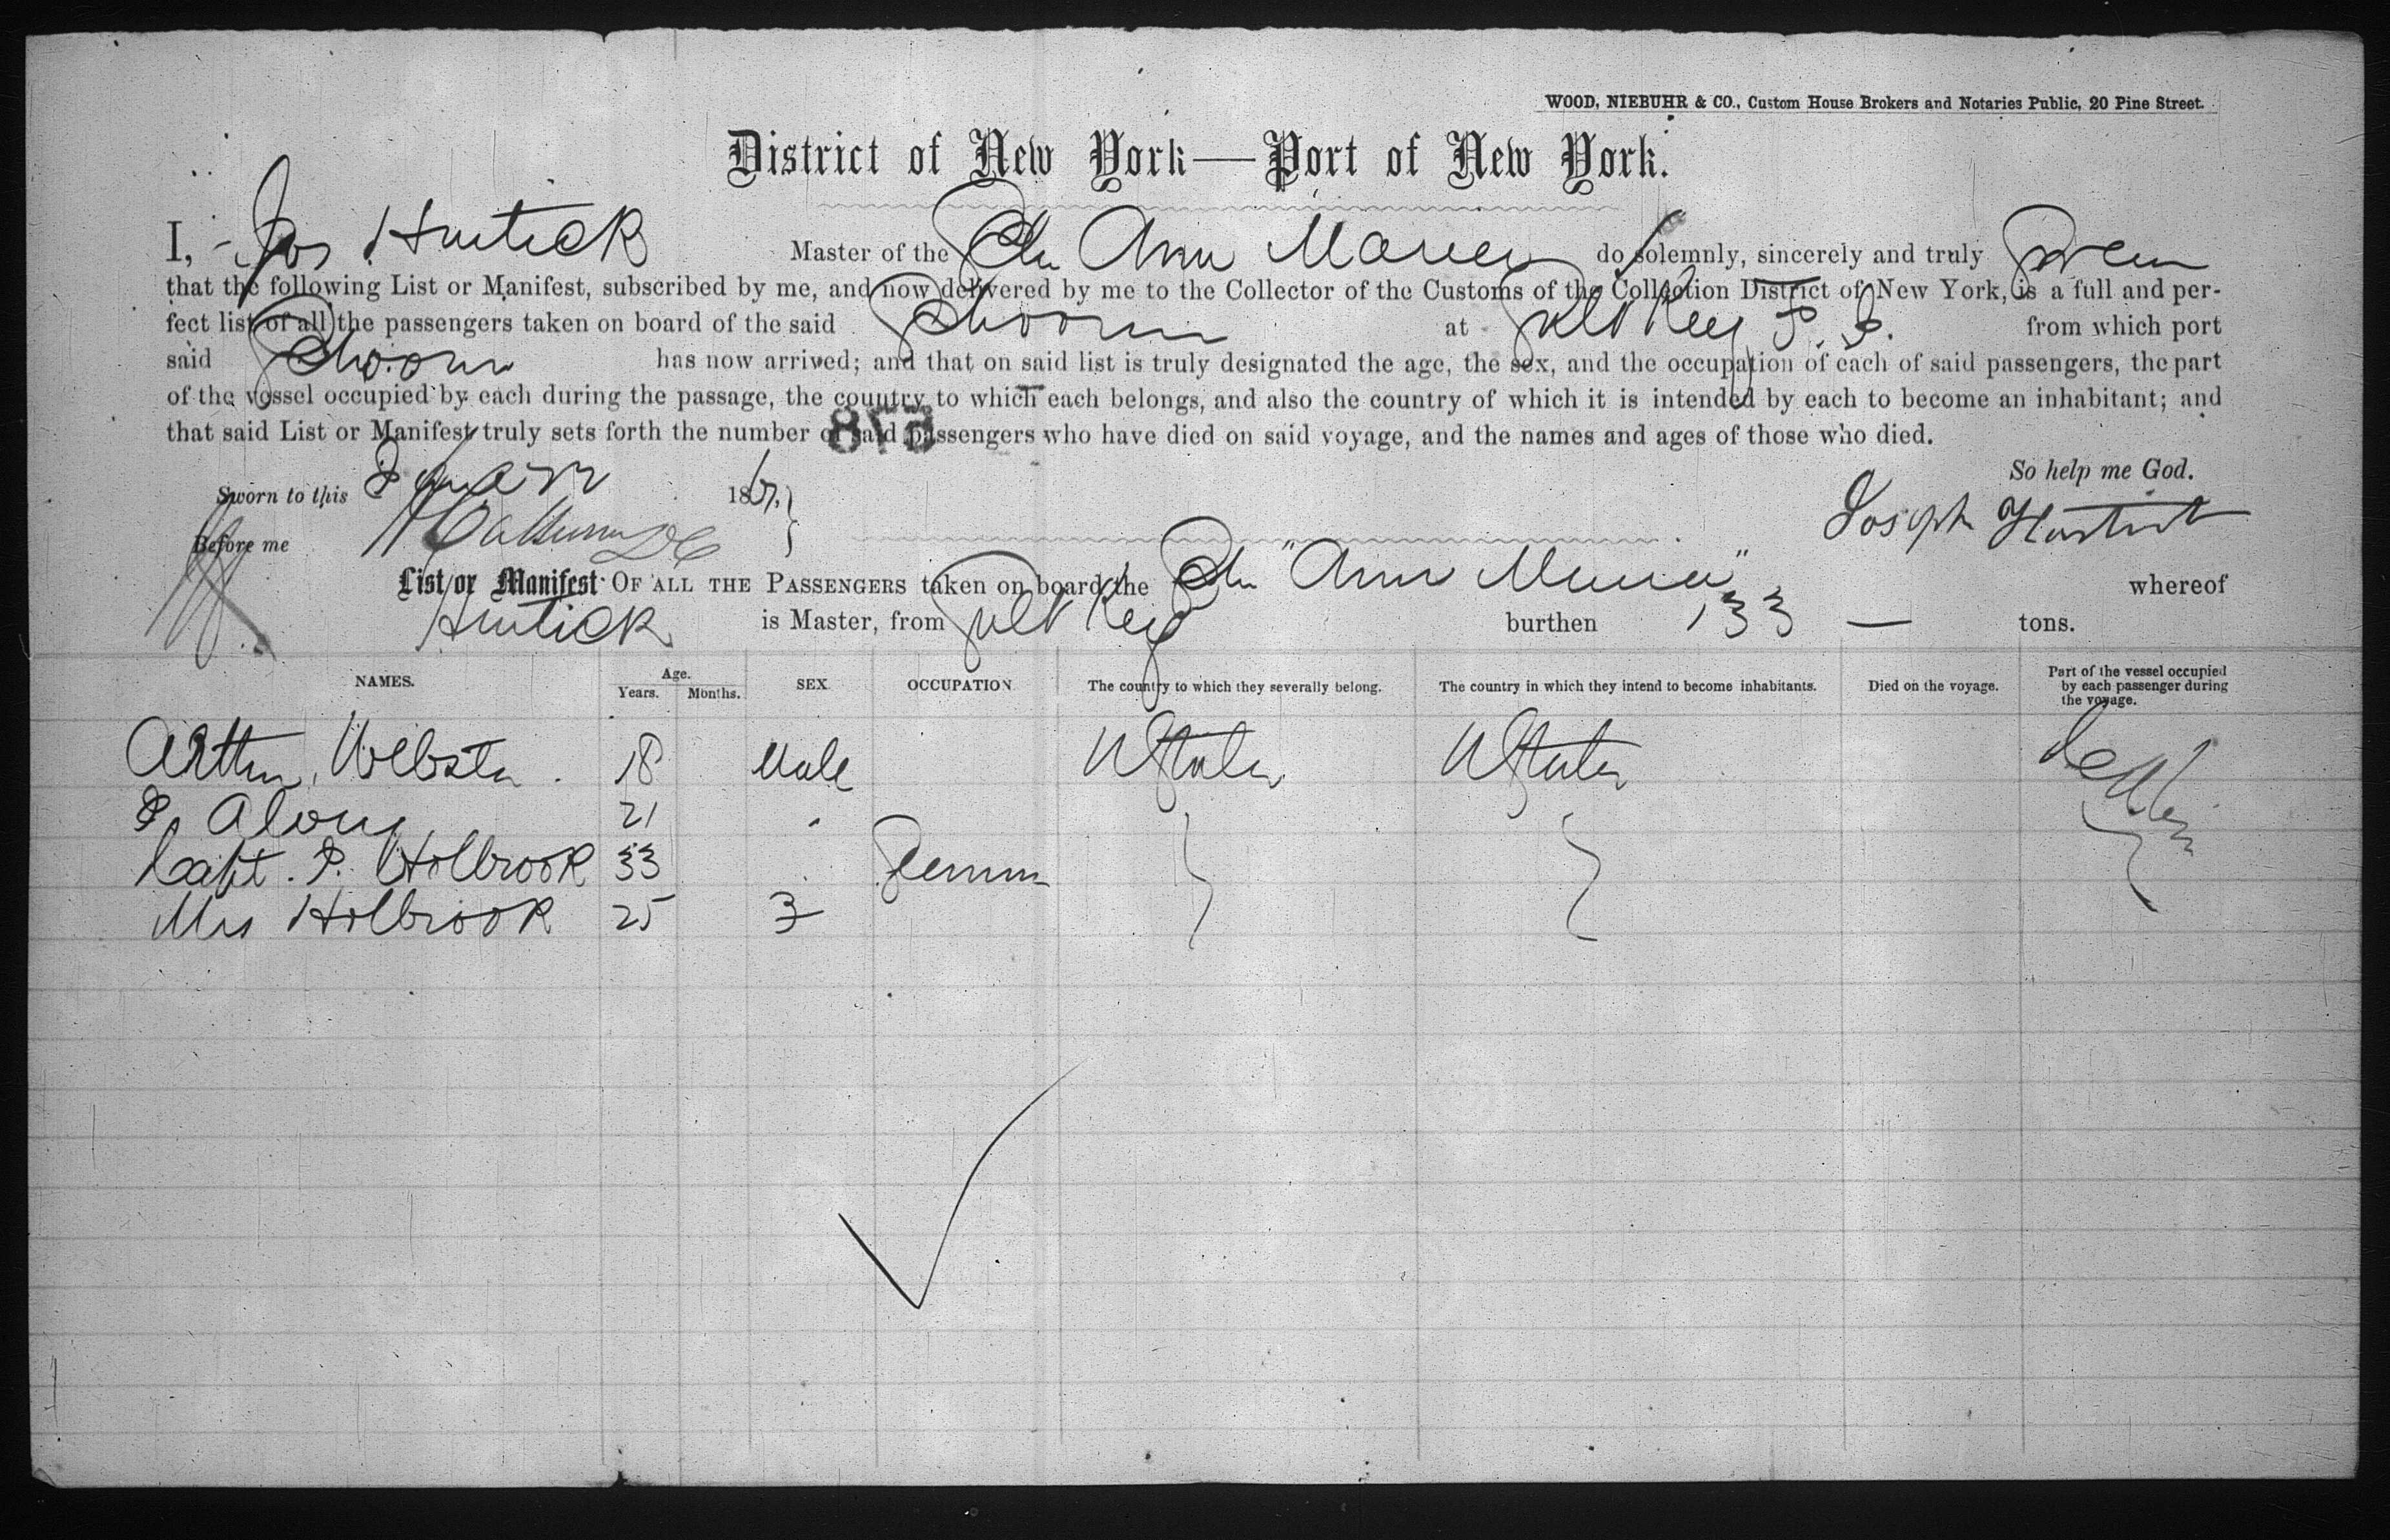 WOOD, NIEBUHR & CO., Custom House Brokers and Notaries Public, 20 Pine Street.
District of New York—Port of New York.
I, Jos Hustick Master of the Sch Ann Maria do solemnly, sincerely and truly Swear
that the following List or Manifest, subscribed by me, and now delivered by me to the Collector of the Customs of the Collection District of New York, is a full and per-
fect list of all the passengers taken on board of the said Schooner at Salt Key T. I. from which port
said Schooner has now arrived; and that on said list is truly designated the age, the sex, and the occupation of each of said passengers, the part
of the vessel occupied by each during the passage, the country to which each belongs, and also the country of which it is intended by each to become an inhabitant; and
that said List or Manifest truly sets forth the number of said passengers who have died on said voyage, and the names and ages of those who died.
So help me God.
Sworn to this 186
Before me Joseph
List or Manifest OF ALL THE PASSENGERS taken on board the Sch "Ann Maria" whereof
Hustick is Master, from Salt Key burthen 133 — tons.
NAMES. Age. Years. Months. SEX OCCUPATION The country to which they severally belong. The country in which they intend to become inhabitants. Died on the voyage. Part of the vessel occupied by each passenger during the voyage.
Arthur Webster 18 Male UStates UStates
Alony 21 "
Capt. P. Holbrook 33
Mrs Holbrook 25 F